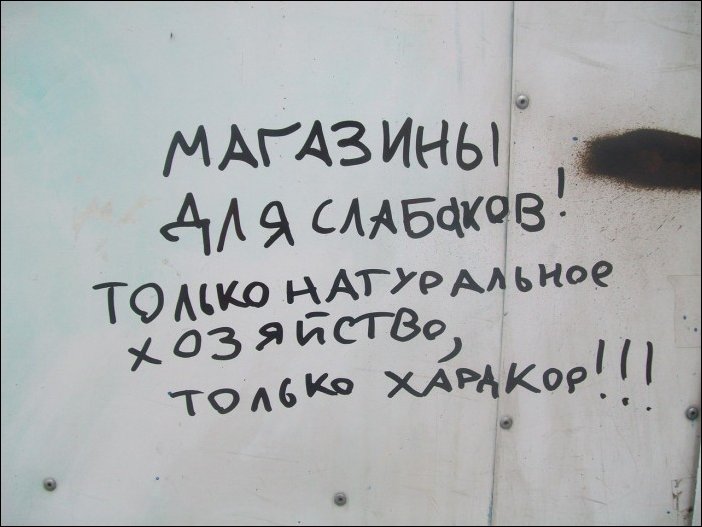 МАГАЗИНЫ
ДЛЯ СЛАБАКОВ!
ТОЛЬКО НАТУРАЛЬНОЕ
ХОЗЯЙСТВО,
ТОЛЬКО ХАРДКОР!!!